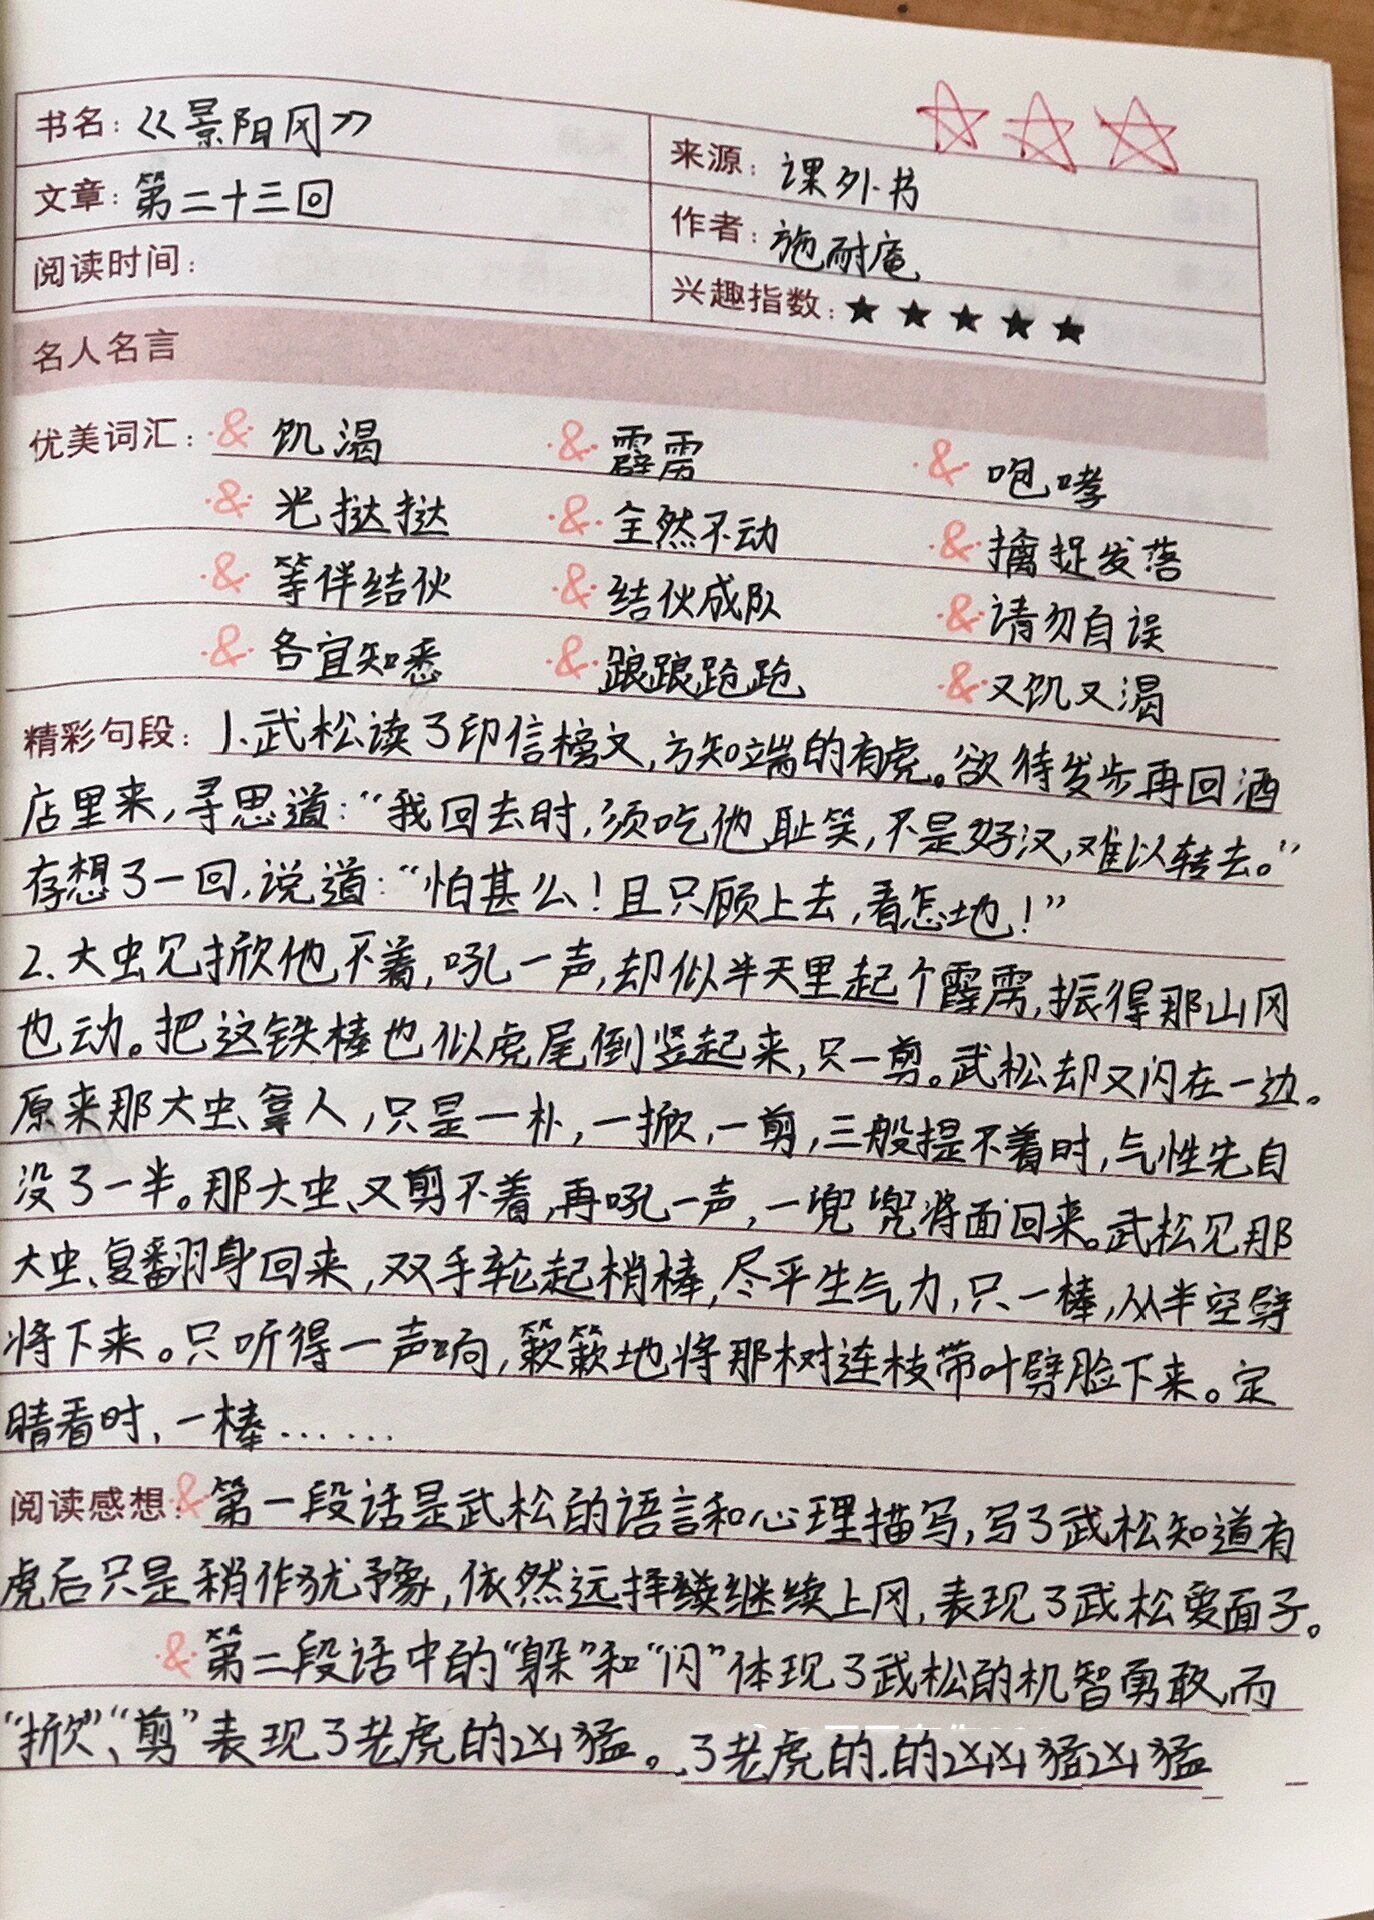 书名：《景阳冈》
来源：课外书
文章：第二十三回
作者：施耐庵
阅读时间：
兴趣指数：★★★★★
名人名言
优美词汇：& 饥渴 & 霹雳 & 咆哮
& 光挞挞 & 全然不动 & 擒捉发落
& 等伴结伙 & 结伙成队 & 请勿自误
& 各宜知悉 & 踉踉跄跄 & 又饥又渴
精彩句段：1.武松读了印信榜文，方知端的有虎。欲待发步再回酒
店里来，寻思道：“我回去时，须吃他耻笑，不是好汉，难以转去。”
存想了一回，说道：“怕甚么！且只顾上去，看怎地！”
2.大虫见掀他不着，吼一声，却似半天里起个霹雳，振得那山冈
也动。把这铁棒也似虎尾倒竖起来，只一剪。武松却又闪在一边。
原来那大虫拿人，只是一扑，一掀，一剪，三般提不着时，气性先自
没了一半。那大虫又剪不着，再吼一声，一兜兜将面回来。武松见那
大虫复翻身回来，双手轮起梢棒，尽平生气力，只一棒，从半空劈
将下来。只听得一声响，簌簌地将那树连枝带叶劈脸下来。定
睛看时，一棒……
阅读感想：& 第一段话是武松的语言和心理描写，写了武松知道有
虎后只是稍作犹豫，依然选择继续上冈，表现了武松爱面子。
& 第二段话中的“躲”和“闪”体现了武松的机智勇敢，而
“掀”、“剪”表现了老虎的凶猛。.了老虎的.的凶凶猛凶猛